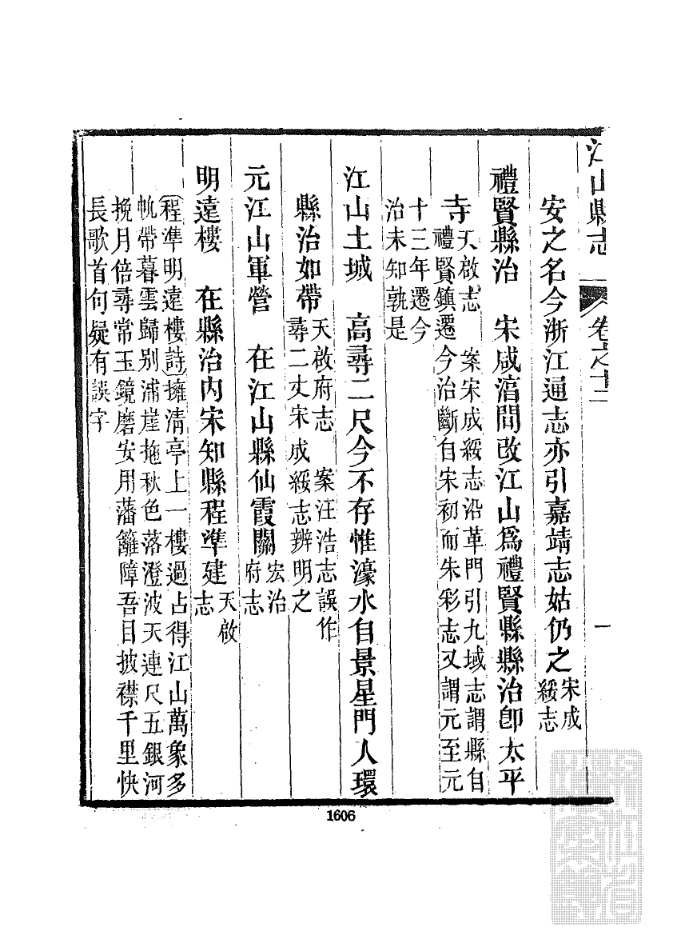 江山縣志 卷之十二 一
安之名今浙江通志亦引嘉靖志姑仍之宋成
綏志
禮賢縣治 宋咸淳間改江山爲禮賢縣縣治卽太平
寺天啟志 案宋成綏志沿革門引九域志謂縣自
禮賢鎮遷今治斷自宋初而朱彩志又謂元至元
十三年遷今
治未知孰是
江山土城 高尋二尺今不存惟濠水自景星門人環
縣治如帶天啟府志 案汪浩志誤作
尋二丈宋成綏志辨明之
元江山軍營 在江山縣仙霞關宏治
府志
明遠樓 在縣治內宋知縣程準建天啟
志
程準明遠樓詩擁清亭上一樓過占得江山萬象多
帆帶暮雲歸别浦崖拖秋色落澄波天連尺五銀河
挽月倍尋常玉鏡磨安用藩籬障吾目披襟千里快
長歌首句疑有誤字
1606